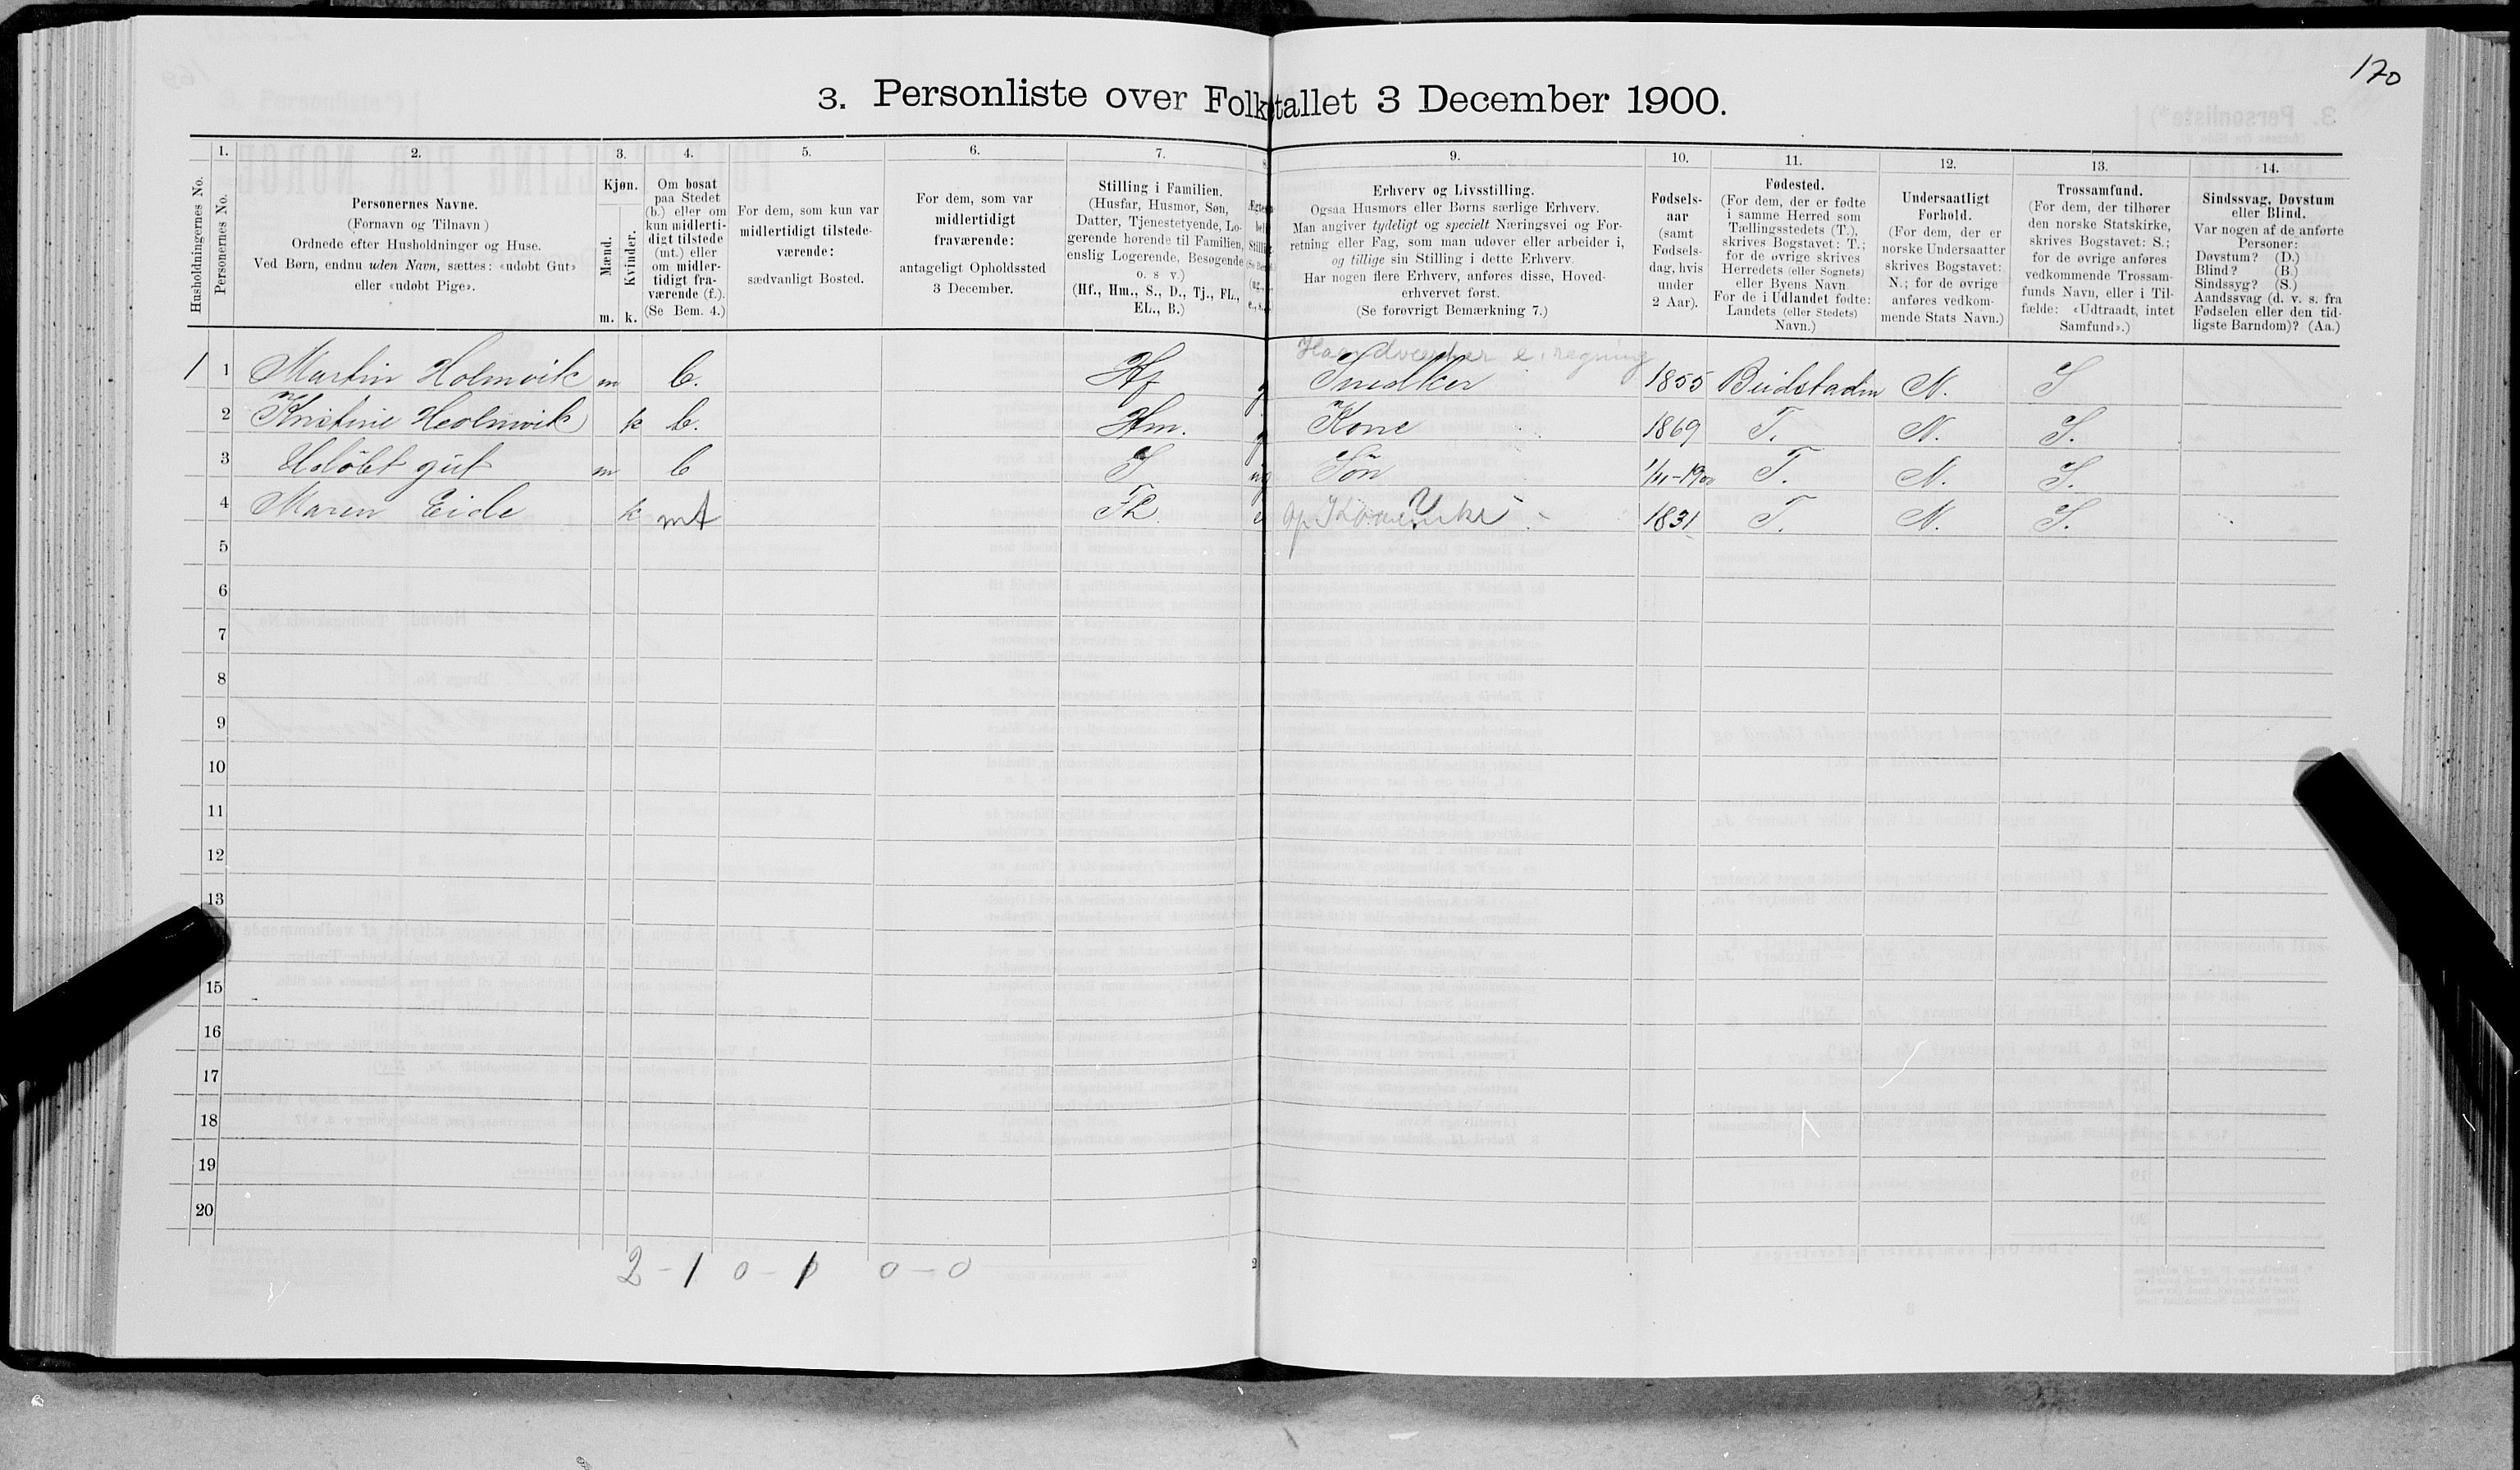 170
3. Personliste over Folketallet 3 December 1900.
1. 2. 3. 4. 5. 6. 7. 8. 9. 10. 11. 12. 13. 14.
Husholdningernes No.
Personernes No.
Personernes Navne.
(Fornavn og Tilnavn)
Ordnede efter Husholdninger og Huse.
Ved Børn, endnu uden Navn, sættes: «udøbt Gut»
eller «udøbt Pige».
Kjøn.
Mænd.
Kvinder.
m. k.
Om bosat
paa Stedet
(b.) eller om
kun midlerti-
digt tilstede
(mt.) eller
om midler-
tidigt fra-
værende (f.).
(Se Bem. 4.)
For dem, som kun var
midlertidigt tilstede-
værende:
sædvanligt Bosted.
For dem, som var
midlertidigt
fraværende:
antageligt Opholdssted
3 December.
Stilling i Familien.
(Husfar, Husmor, Søn,
Datter, Tjenestetyende, Lo-
gerende hørende til Familien,
enslig Logerende, Besøgende
o. s v.)
(Hf., Hm., S., D., Tj., FL.,
EL., B.)
Erhverv og Livsstilling.
Ogsaa Husmors eller Børns særlige Erhverv.
Man angiver tydeligt og specielt Næringsvei og For-
retning eller Fag, som man udøver eller arbeider i,
og tillige sin Stilling i dette Erhverv.
Har nogen flere Erhverv, anføres disse, Hoved-
erhvervet først.
(Se forøvrigt Bemærkning 7.)
Fødsels-
aar
(samt
Fødsels-
dag, hvis
under
2 Aar).
Fødested.
(For dem, der er fødte
i samme Herred som
Tællingsstedets (T.),
skrives Bogstavet: T.;
for de øvrige skrives
Herredets (eller Sognets)
eller Byens Navn
For de i Udlandet fødte:
Landets (eller Stedets)
Navn.)
Undersaatligt
Forhold.
(For dem, der er
norske Undersaatter
skrives Bogstavet:
N.; for de øvrige
anføres vedkom-
mende Stats Navn.)
Trossamfund.
(For dem, der tilhører
den norske Statskirke,
skrives Bogstavet: S.;
for de øvrige anføres
vedkommende Trossam-
funds Navn, eller i Til-
fælde: «Udtraadt, intet
Samfund».)
Sindssvag, Døvstum
eller Blind.
Var nogen af de anførte
Personer:
Døvstum? (D.)
Blind? (B.)
Sindssyg? (S.)
Aandssvag (d. v. s. fra
Fødselen eller den tid-
ligste Barndom)? (Aa.)
Haandværker e. regning
1 1 Martin Holmvik m b. Hf g Snedker 1855 Beidstaden N. S
2 Kristine Heolmvik k b. Hm. g Kone 1869 T. N. S.
3 Udöbt gut m b S ug Sön 1/11-1900 T. N. S.
4 Maren Eide k mt FL e 1831 T. N. S.
5
6
7
8
9
10
11
12
13
15
16
17
18
19
20
2 - 1 0 - 1 0 - 0
2